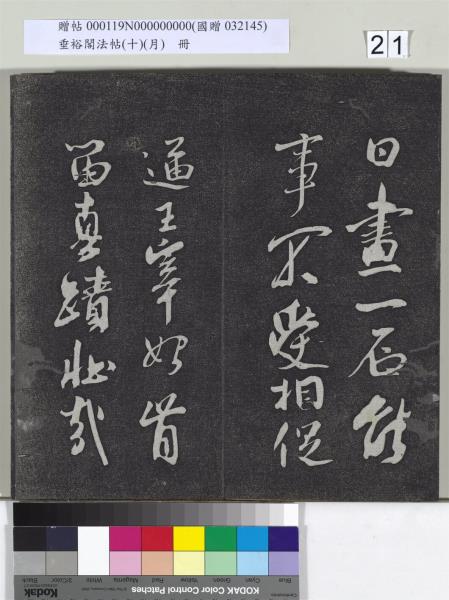 贈帖 000119N000000000(國贈 032145)
垂裕閣法帖(十)(月) 冊
21
日畫一石能
事不受相促
逼王宰始肯
留真蹟壯哉
Blue Cyan Green Yellow Red Magenta White 3/Color Black
Kodak
KODAK Color Control Patches